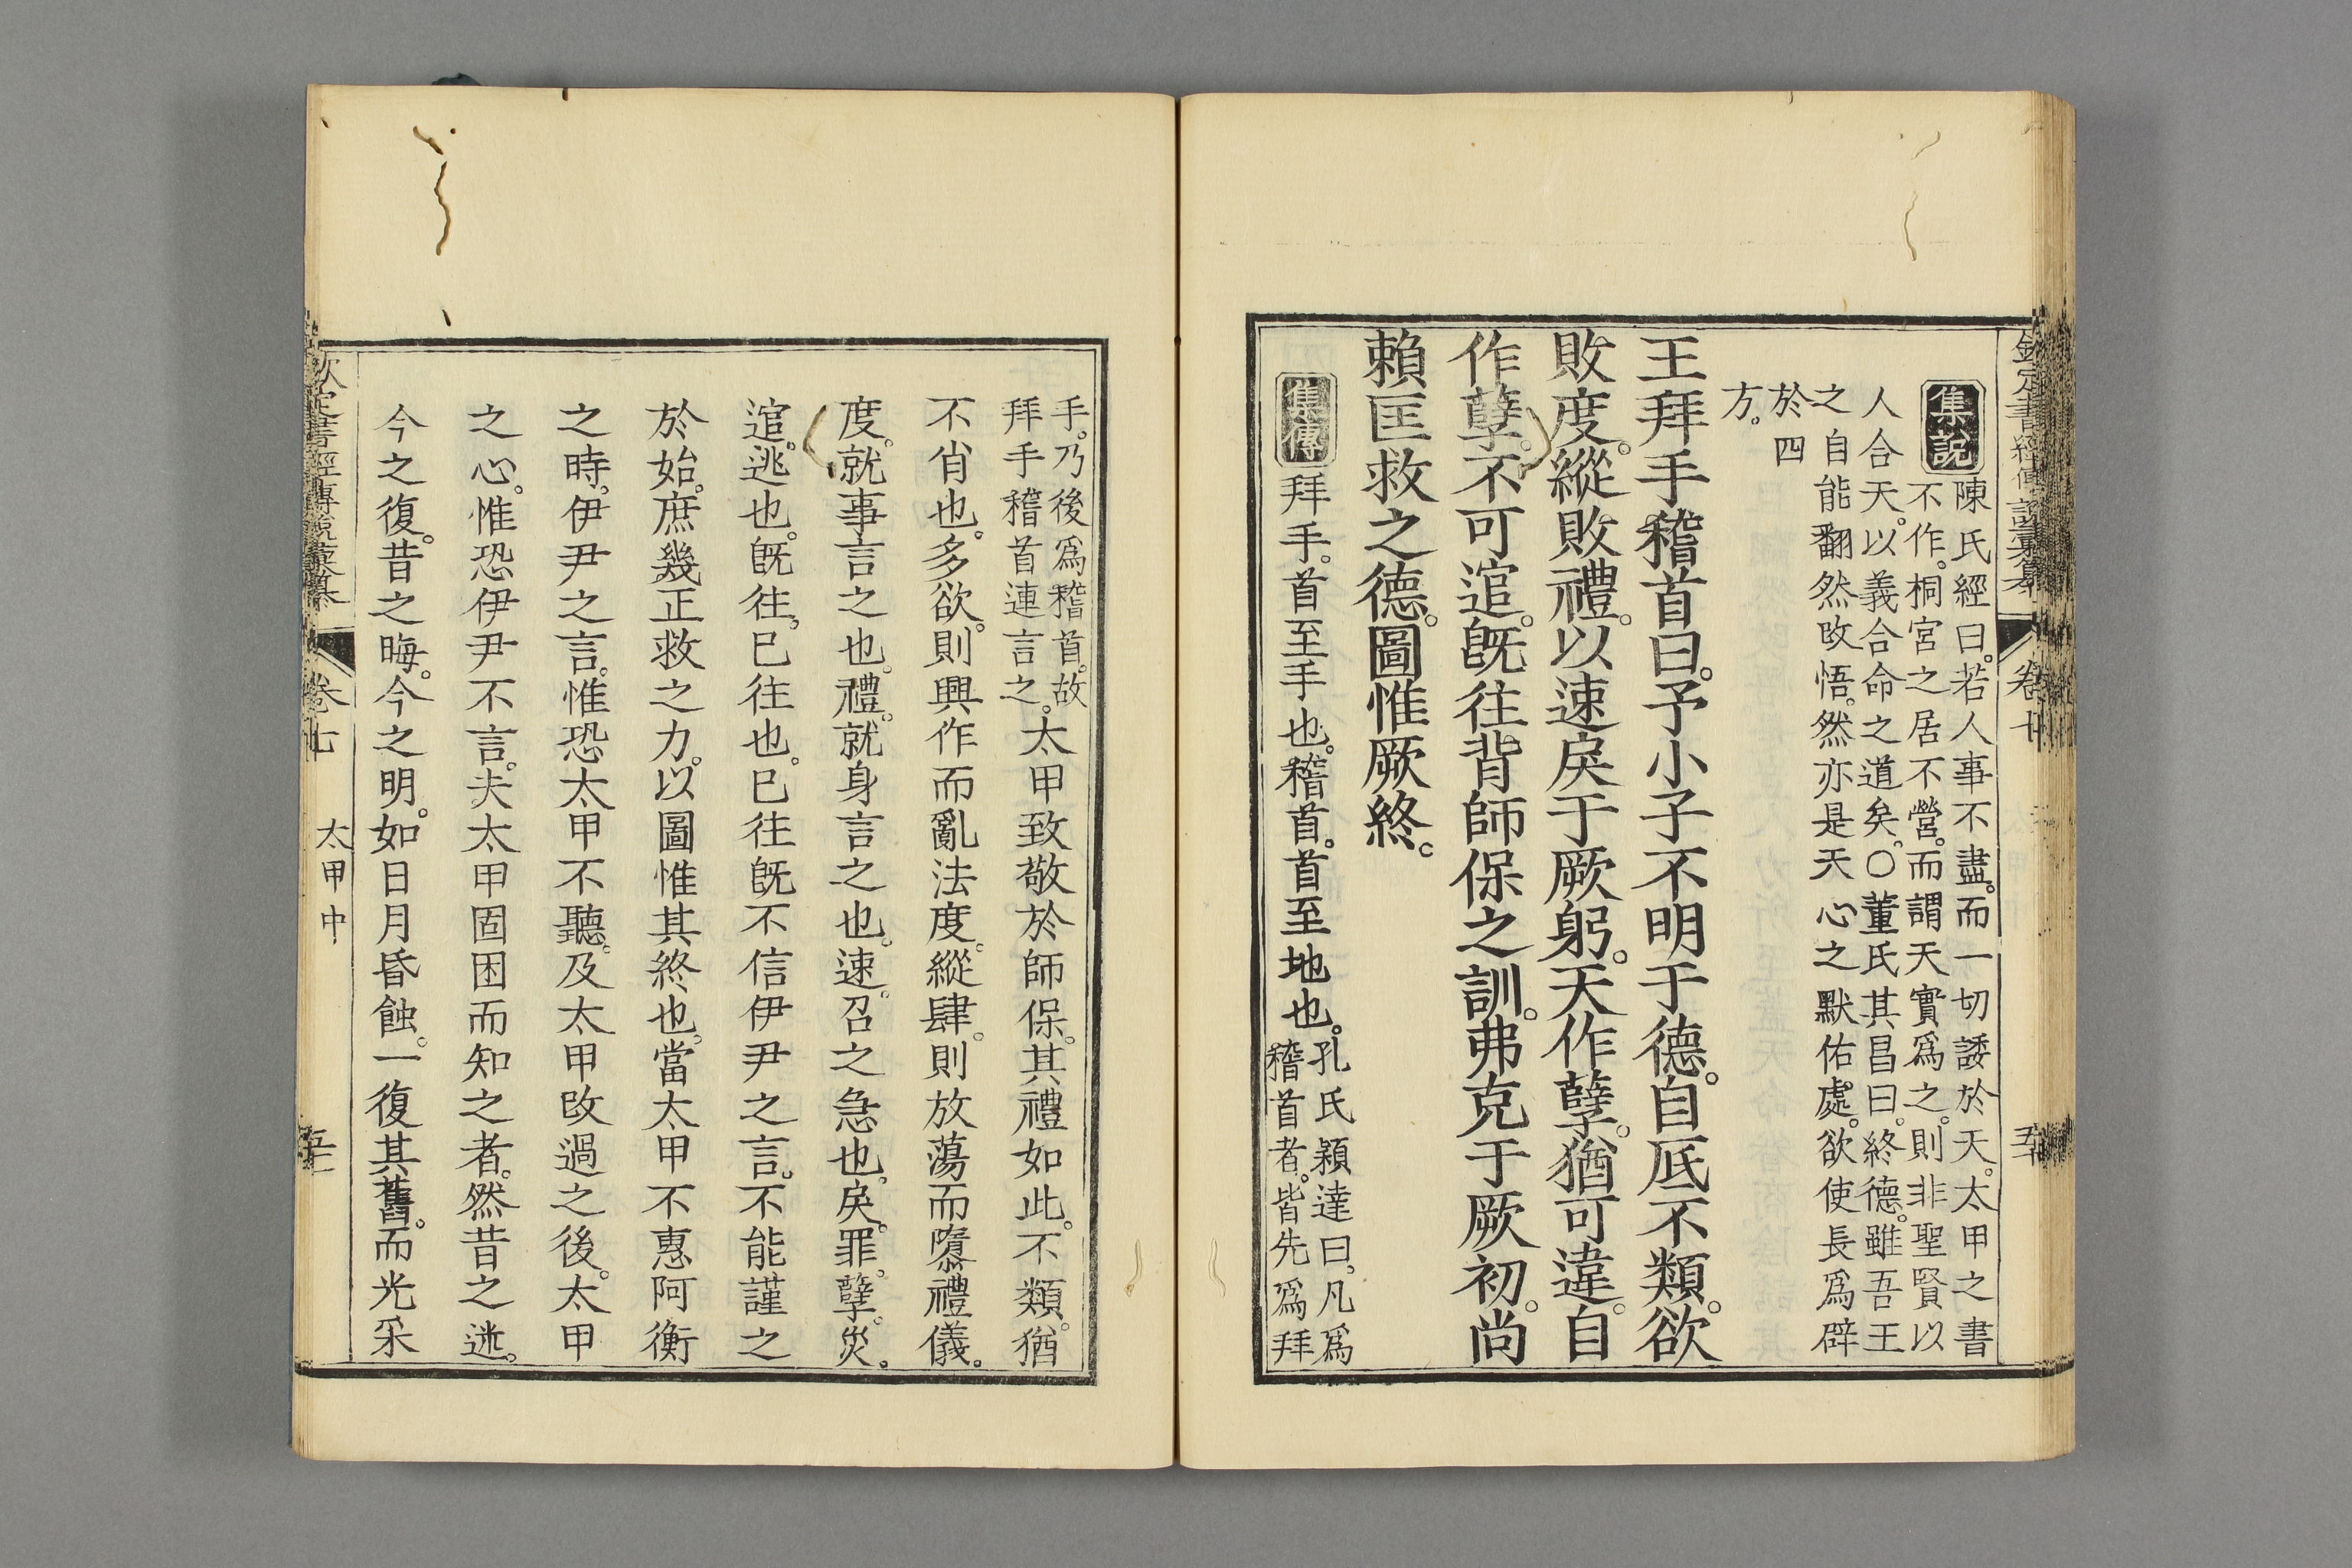 集說
陳氏經曰。若人事不盡。而一切諉於天。太甲之書
不作。桐宮之居不營。而謂天實爲之。則非聖賢以
人合天。以義合命之道矣。〇董氏其昌曰。終德。雖吾王
之自能翻然攺悟。然亦是天心之默佑處。欲使長爲辟
於四
方。
王拜手稽首曰。予小子不明于德。自厎不類。欲
敗度。縱敗禮。以速戾于厥躬。天作孽。猶可違。自
作孽。不可逭。旣往背師保之訓。弗克于厥初。尚
賴匡救之德。圖惟厥終。
集傳
拜手。首至手也。稽首。首至地也。
孔氏穎達曰。凡爲
稽首者。皆先爲拜
手。乃後爲稽首。故
拜手稽首連言之。
太甲致敬於師保。其禮如此。不類。猶
不肖也。多欲。則興作而亂法度。縱肆。則放蕩而隳禮儀。
度。就事言之也。禮。就身言之也。速。召之急也。戾。罪。孽。災。
逭。逃也。旣往。已往也。已往旣不信伊尹之言。不能謹之
於始。庶幾正救之力。以圖惟其終也。當太甲不惠阿衡
之時。伊尹之言。惟恐太甲不聽。及太甲攺過之後。太甲
之心。惟恐伊尹不言。夫太甲固困而知之者。然昔之迷。
今之復。昔之晦。今之明。如日月昏蝕。一復其舊。而光采
欽定書經傳說彙纂
卷七
太甲中